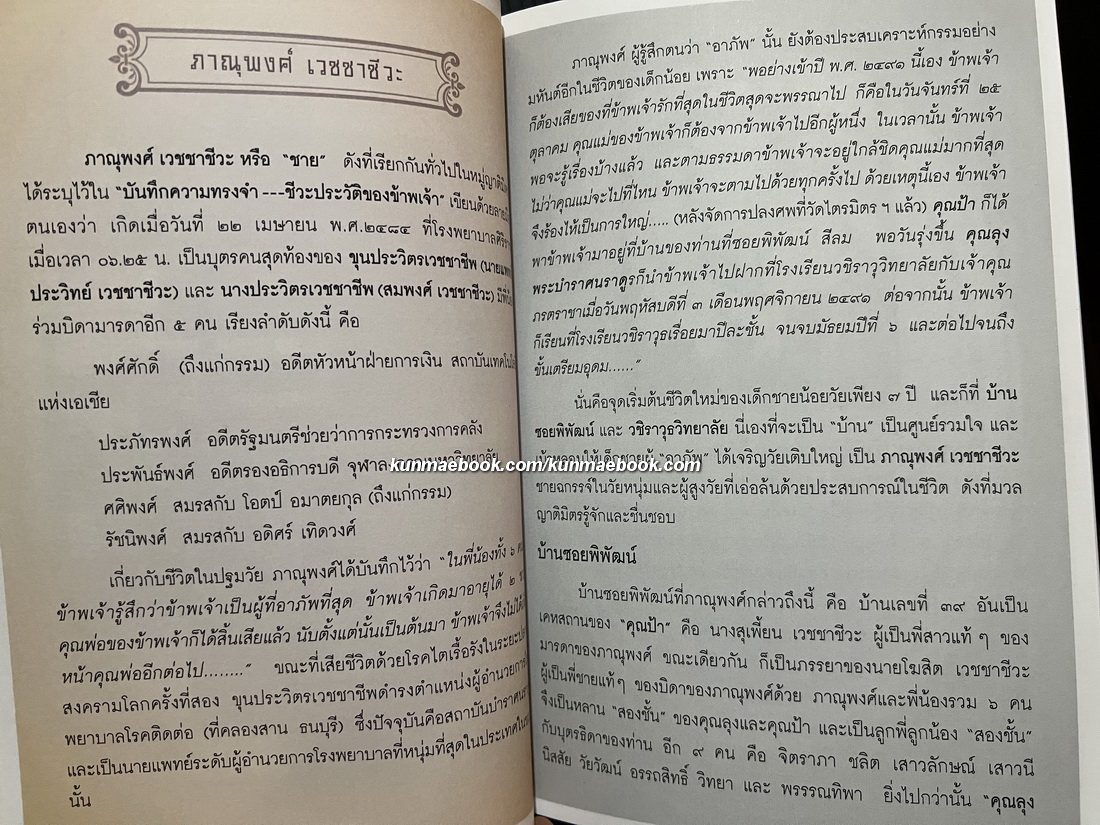 ภาณุพงศ์ เวชชาชีวะ
ภาณุพงศ์ เวชชาชีวะ หรือ "ชาย" ดังที่เรียกกันทั่วไปในหมู่ญาติมิตร
ได้ระบุไว้ใน "บันทึกความทรงจำ ---ชีวะประวัติของข้าพเจ้า" เขียนด้วย
ตนเองว่า เกิดเมื่อวันที่ ๒๒ เมษายน พ.ศ.๒๔๘๔ ที่โรงพยาบาลศิริราช
เมื่อเวลา ๐๖.๒๕ น. เป็นบุตรคนสุดท้องของ ขุนประวิตรเวชชาชีพ (นายแพทย์
ประวิทย์ เวชชาชีวะ) และ นางประวิตรเวชชาชีพ (สมพงศ์ เวชชาชีวะ)
ร่วมบิดามารดาอีก ๕ คน เรียงลำดับดังนี้ คือ
พงศ์ศักดิ์ (ถึงแก่กรรม) อดีตหัวหน้าฝ่ายการเงิน สถาบันเทคโนโลยี
แห่งเอเชีย
ประภัทรพงศ์ อดีตรัฐมนตรีช่วยว่าการกระทรวงการคลัง
ประพันธ์พงศ์ อดีตรองอธิการบดี จุฬาลงกรณมหาวิทยาลัย
ศศิพงศ์ สมรสกับ โอตป์ อมาตยกุล (ถึงแก่กรรม)
รัชนิพงศ์ สมรสกับ อดิศร์ เทิดวงศ์
เกี่ยวกับชีวิตในปฐมวัย ภาณุพงศ์ได้บันทึกไว้ว่า "ในพี่น้องทั้ง ๖ คน
ข้าพเจ้ารู้สึกว่าข้าพเจ้าเป็นผู้ที่อาภัพที่สุด ข้าพเจ้าเกิดมาอายุได้ ๒
คุณพ่อของข้าพเจ้าก็ได้สิ้นเสียแล้ว นับตั้งแต่นั้นเป็นต้นมา ข้าพเจ้าจึงไม่ได้
หน้าคุณพ่ออีกต่อไป........" ขณะที่เสียชีวิตด้วยโรคไตเรื้อรังในระยะ
สงครามโลกครั้งที่สอง ขุนประวิตรเวชชาชีพดำรงตำแหน่งผู้อำนวยการ
พยาบาลโรคติดต่อ (ที่คลองสาน ธนบุรี) ซึ่งปัจจุบันคือสถาบันบำราศนรา
และเป็นนายแพทย์ระดับผู้อำนวยการโรงพยาบาลที่หนุ่มที่สุดในประเทศใน
นั้น
ภาณุพงศ์ ผู้รู้สึกตนว่า "อาภัพ" นั้น ยังต้องประสบเคราะห์กรรมอย่าง
มหันต์อีกในชีวิตของเด็กน้อย เพราะ "พอย่างเข้าปี พ.ศ. ๒๔๙๑ นี้เอง ข้าพเจ้า
ก็ต้องเสียของที่ข้าพเจ้ารักที่สุดในชีวิตสุดจะพรรณาไป ก็คือในวันจันทร์ที่ ๒๕
ตุลาคม คุณแม่ของข้าพเจ้าก็ต้องจากข้าพเจ้าไปอีกผู้หนึ่ง ในเวลานั้น ข้าพเจ้า
พอจะรู้เรื่องบ้างแล้ว และตามธรรมดาข้าพเจ้าจะอยู่ใกล้ชิดคุณแม่มากที่สุด
ไม่ว่าคุณแม่จะไปที่ไหน ข้าพเจ้าจะตามไปด้วยทุกครั้งไป ด้วยเหตุนี้เอง ข้าพเจ้า
จึงร้องไห้เป็นการใหญ่..... (หลังจัดการปลงศพที่วัดไตรมิตร ฯ แล้ว) คุณป้า ก็ได้
พาข้าพเจ้ามาอยู่ที่บ้านของท่านที่ซอยพิพัฒน์ สีลม พอวันรุ่งขึ้น คุณลุง
พระบำราศนราดูรก็นำข้าพเจ้าไปฝากที่โรงเรียนวชิราวุธวิทยาลัยกับเจ้าคุณ
ภรตราชาเมื่อวันพฤหัสบดีที่ ๓ เดือนพฤศจิกายน ๒๔๙๑ ต่อจากนั้น ข้าพเจ้า
ก็เรียนที่โรงเรียนวชิราวุธเรื่อยมาปีละชั้น จนจบมัธยมปีที่ ๖ และต่อไปจนถึง
ขั้นเตรียมอุดม......"
นั่นคือจุดเริ่มต้นชีวิตใหม่ของเด็กชายน้อยวัยเพียง ๗ ปี และก็ที่ บ้าน
ซอยพิพัฒน์ และ วชิราวุธวิทยาลัย นี่เองที่จะเป็น "บ้าน" เป็นศูนย์รวมใจ และ
ให้เด็กชายผู้ "อาภัพ" ได้เจริญวัยเติบใหญ่ เป็น ภาณุพงศ์ เวชชาชีวะ
ชายฉกรรจ์ในวัยหนุ่มและผู้สูงวัยที่เอ่อล้นด้วยประสบการณ์ในชีวิต ดังที่มวล
ญาติมิตรรู้จักและชื่นชอบ
kunmaebook.com/kunmaebook.com
บ้านซอยพิพัฒน์
บ้านซอยพิพัฒน์ที่ภาณุพงศ์กล่าวถึงนี้ คือ บ้านเลขที่ ๓๙ อันเป็น
เคหสถานของ "คุณป้า" คือ นางสุเพี้ยน เวชชาชีวะ ผู้เป็นพี่สาวแท้ ๆ ของ
มารดาของภาณุพงศ์ ขณะเดียวกัน ก็เป็นภรรยาของนายโฆสิต เวชชาชีวะ
ผู้เป็นพี่ชายแท้ๆ ของบิดาของภาณุพงศ์ด้วย ภาณุพงศ์และพี่น้องรวม ๖ คน
จึงเป็นหลาน "สองชั้น" ของคุณลุงและคุณป้า และเป็นลูกพี่ลูกน้อง "สองชั้น"
กับบุตรธิดาของท่าน อีก ๙ คน คือ จิตราภา ชลิต เสาวลักษณ์ เสาวนี
นิสสัย วัยวัฒน์ อรรถสิทธิ์ วิทยา และ พรรรณทิพา ยิ่งไปกว่านั้น "คุณลุง